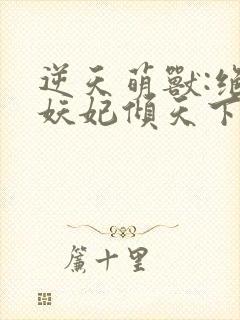 逆天萌獸:絕
妖妃傾天下
簾十里